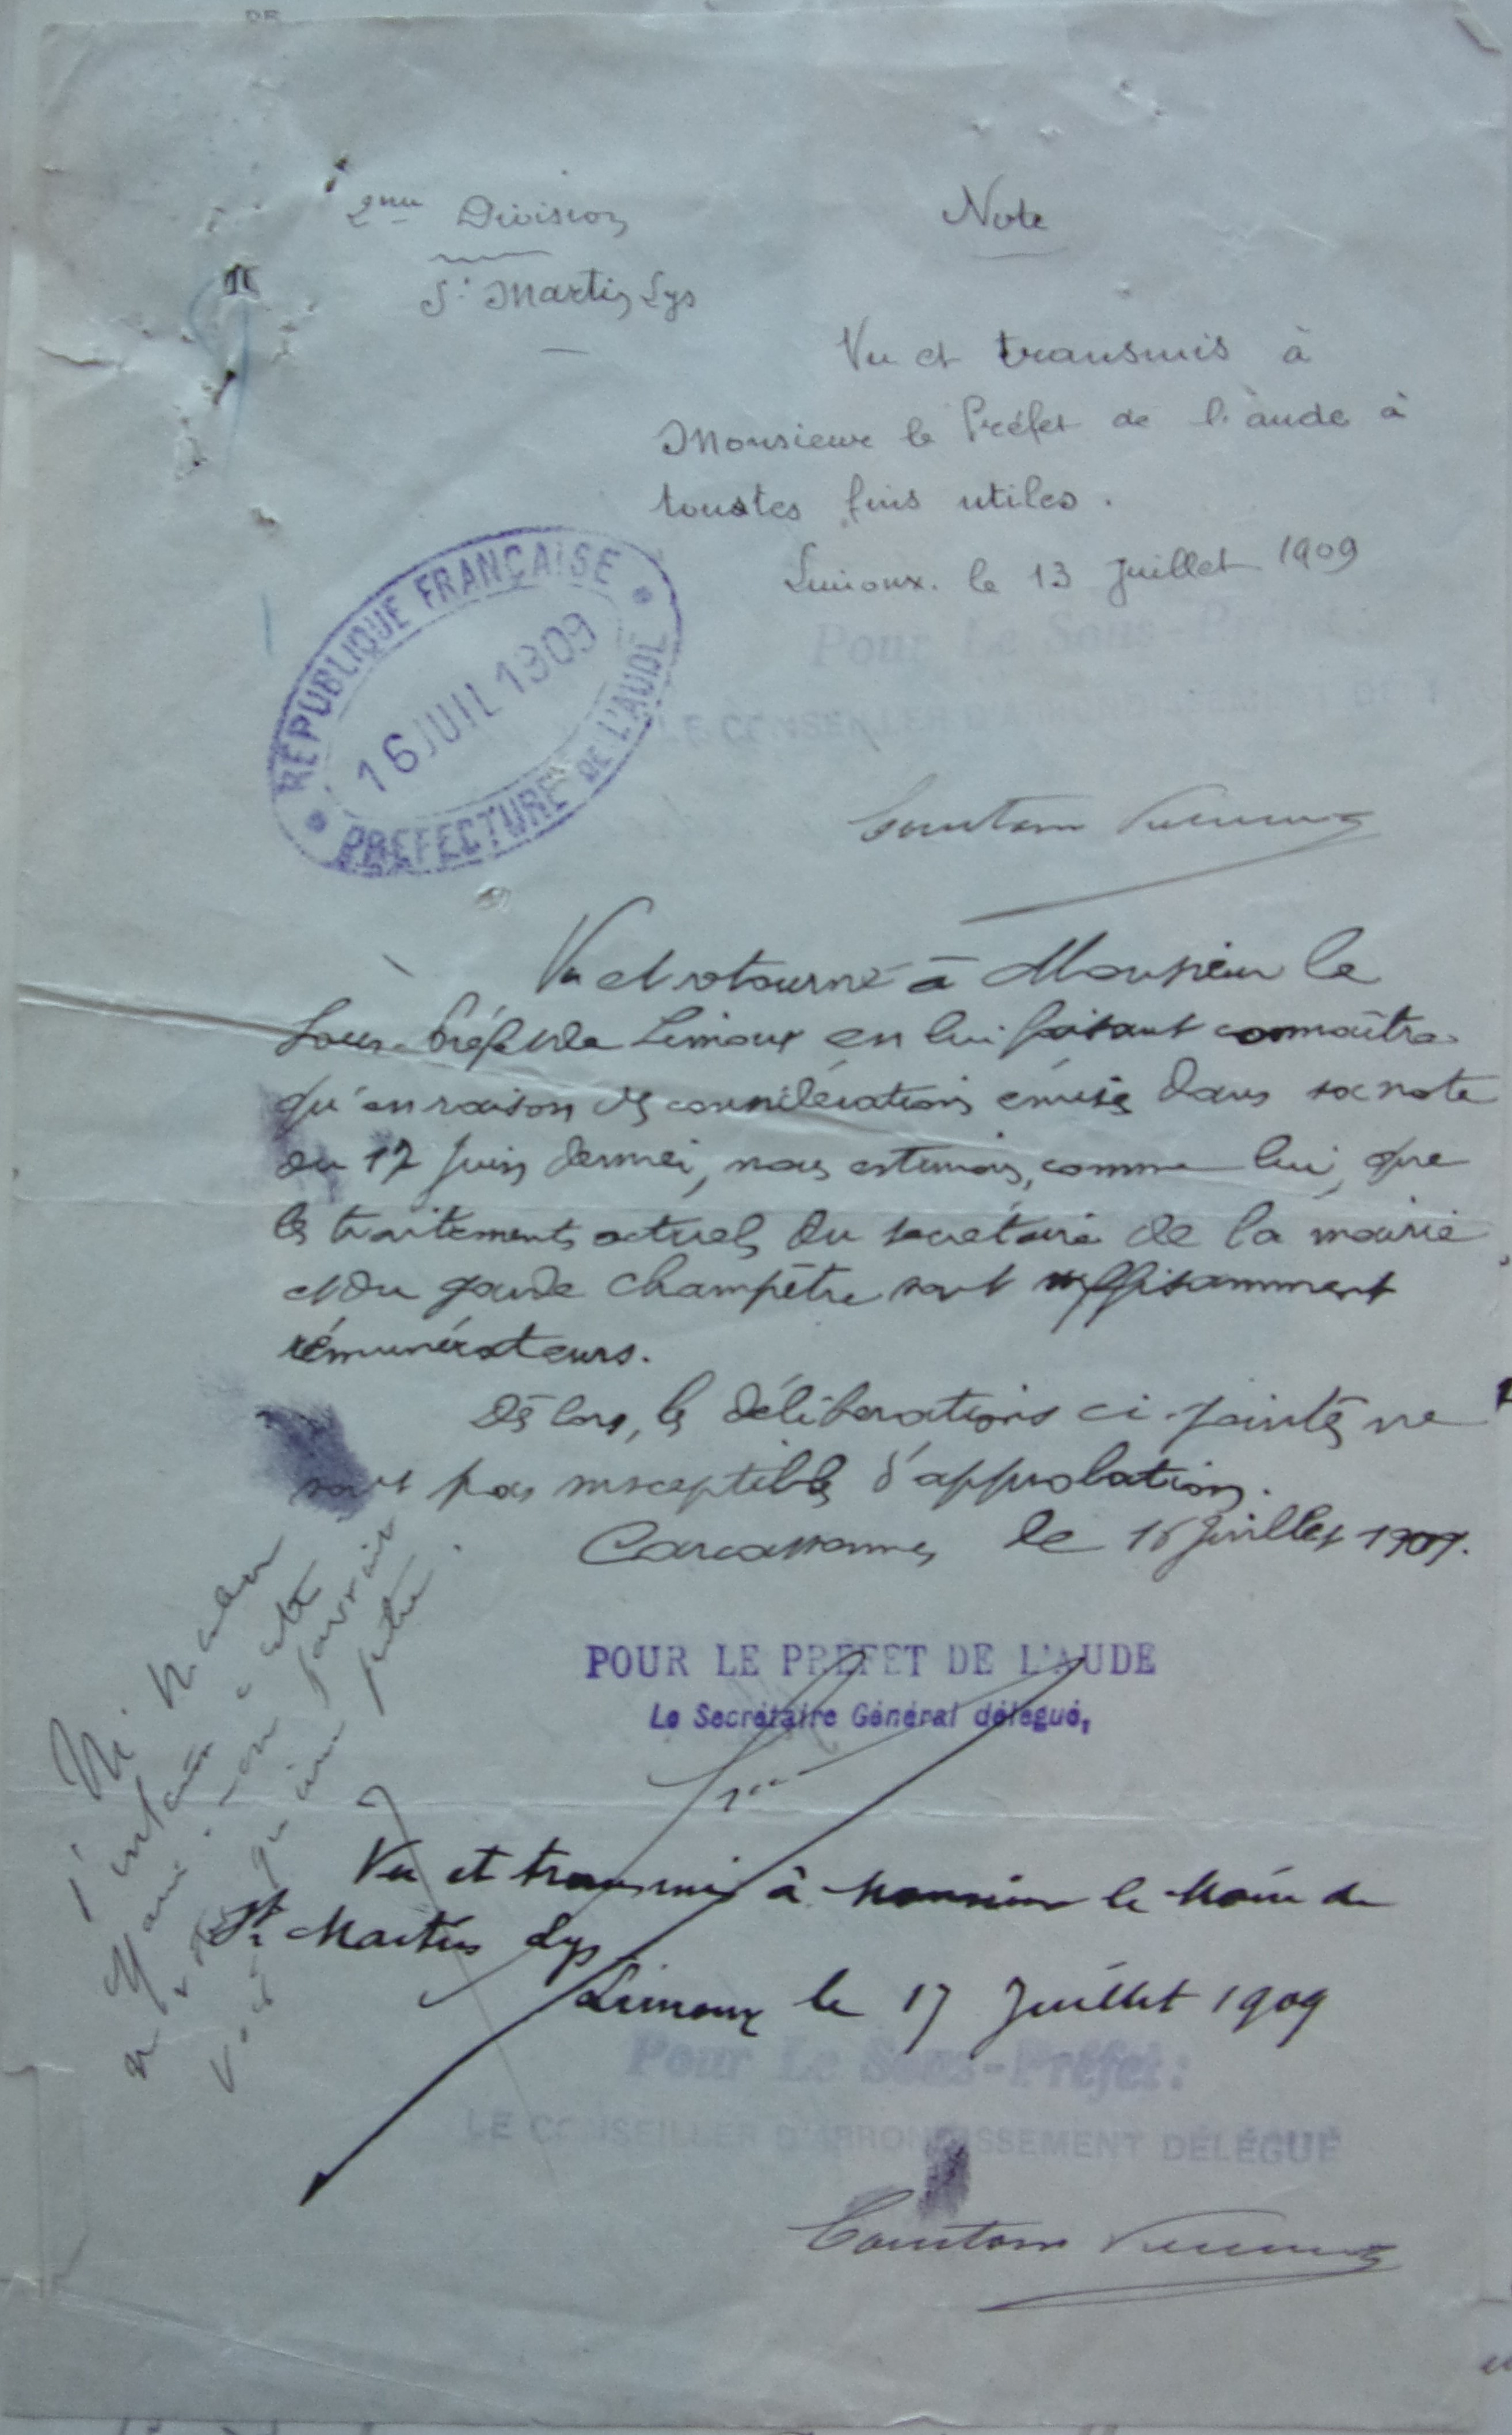 2me Division
St Martin Lys
Note
Vu et transmis à
Monsieur le Préfet de l'aude à
toutes fins utiles.
Limoux. le 13 Juillet 1909
Pour Le Sous-Préfet:
LE CONSEILLER D'ARRONDISSEMENT DE
REPUBLIQUE FRANÇAISE
16 JUIL 1909
PREFECTURE DE L'AUDE
Vu et retourné à Monsieur le
Sous-Préfet de Limoux en lui faisant connaître
qu'en raison des considérations émises dans sa note
du 17 Juin dernier, nous estimons, comme lui, que
les traitements actuels du secrétaire de la mairie
et du garde champêtre sont suffisamment
rémunérateurs.
Dès lors, les délibérations ci-jointes ne
sont pas susceptibles d'approbation.
Carcassonne, le 16 Juillet 1909.
POUR LE PREFET DE L'AUDE
Le Secrétaire Général délégué,
Vu et transmis à Monsieur le Maire de
St Martin Lys
Limoux le 17 Juillet 1909
Pour Le Sous-Préfet:
LE CONSEILLER D'ARRONDISSEMENT DÉLÉGUÉ